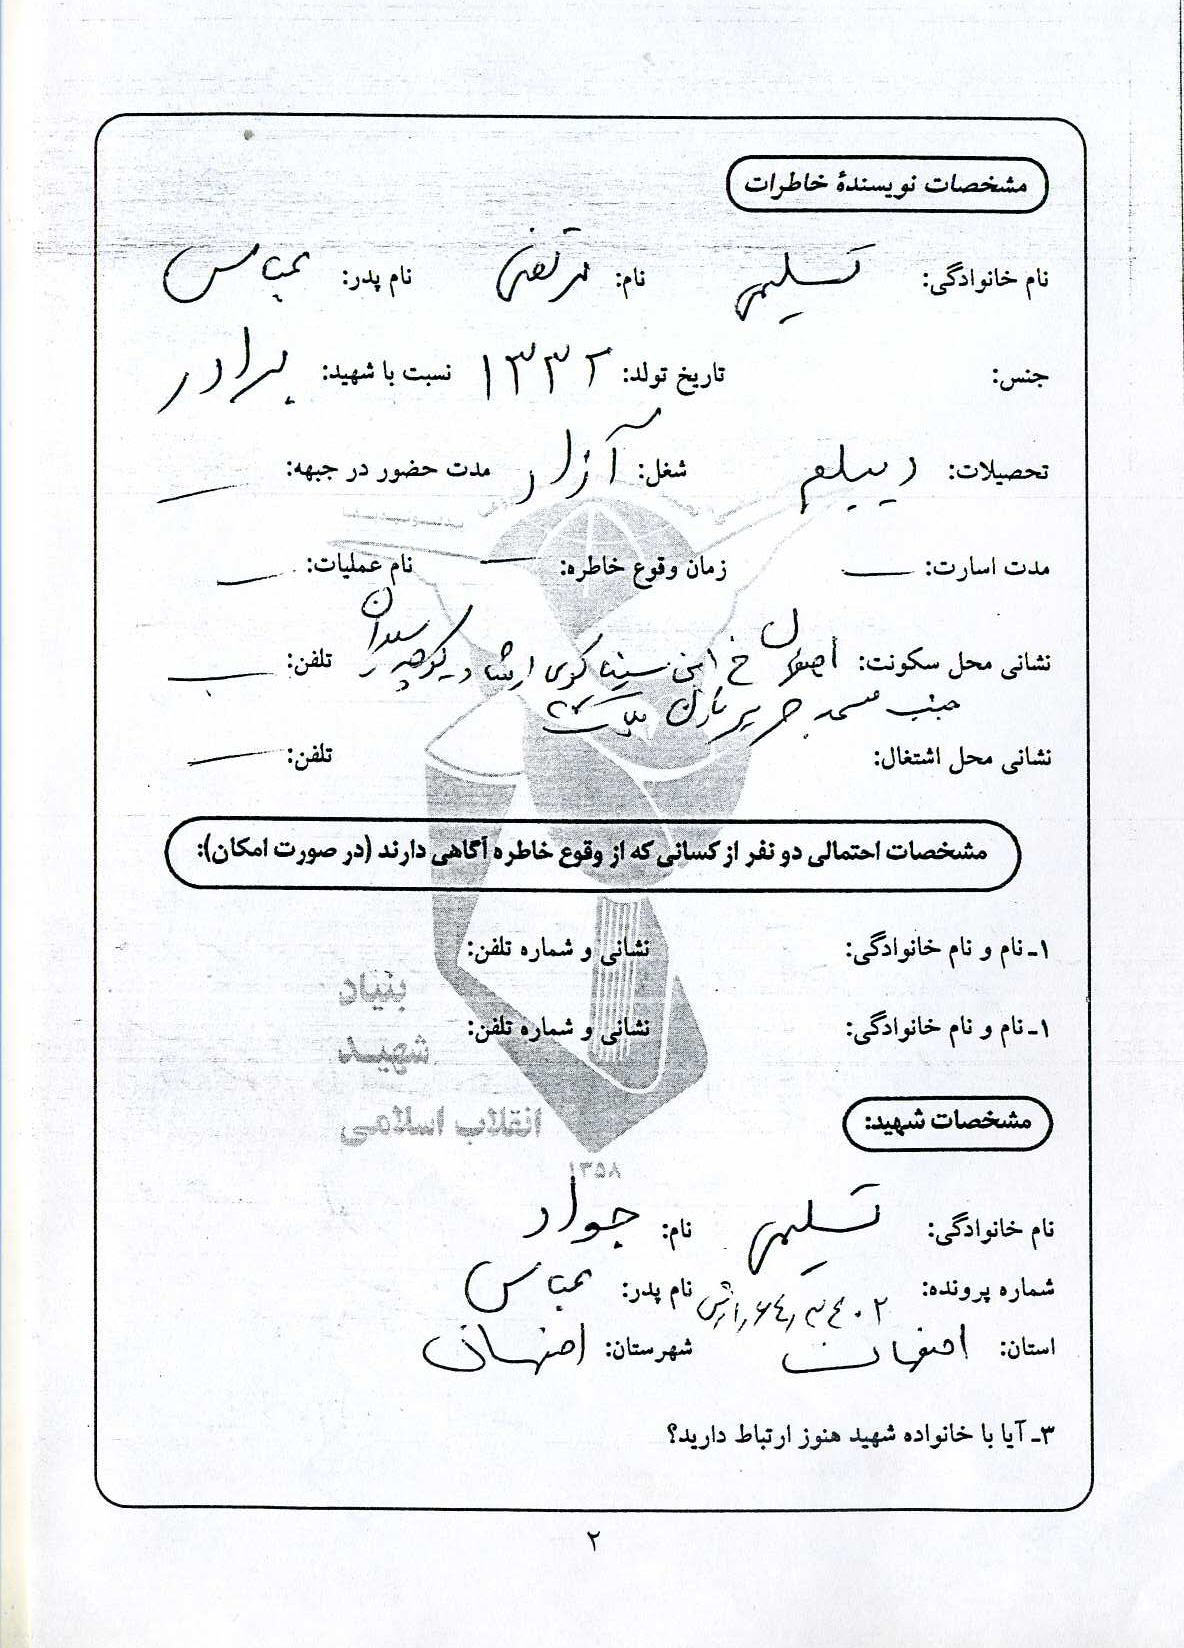 مشخصات نویسندهٔ خاطرات
نام خانوادگی: تسلیمی نام: مرتضی نام پدر: عباس
جنس: تاریخ تولد: ۱۳۳۲ نسبت با شهید: برادر
تحصیلات: دیپلم شغل: آزاد مدت حضور در جبهه: —
مدت اسارت: — زمان وقوع خاطره: — نام عملیات: —
نشانی محل سکونت: اصفهان خ ابن سینا کوی ارشاد کوچه تلفن: —
جنب مسجد پلاک
نشانی محل اشتغال: تلفن: —
مشخصات احتمالی دو نفر از کسانی که از وقوع خاطره آگاهی دارند (در صورت امکان):
۱ـ نام و نام خانوادگی: نشانی و شماره تلفن:
۱ـ نام و نام خانوادگی: نشانی و شماره تلفن:
بنیاد
شهید
انقلاب اسلامی
۱۳۵۸
مشخصات شهید:
نام خانوادگی: تسلیمی نام: جواد
شماره پرونده: نام پدر: عباس
استان: اصفهان شهرستان: اصفهان
۳ـ آیا با خانواده شهید هنوز ارتباط دارید؟
۲